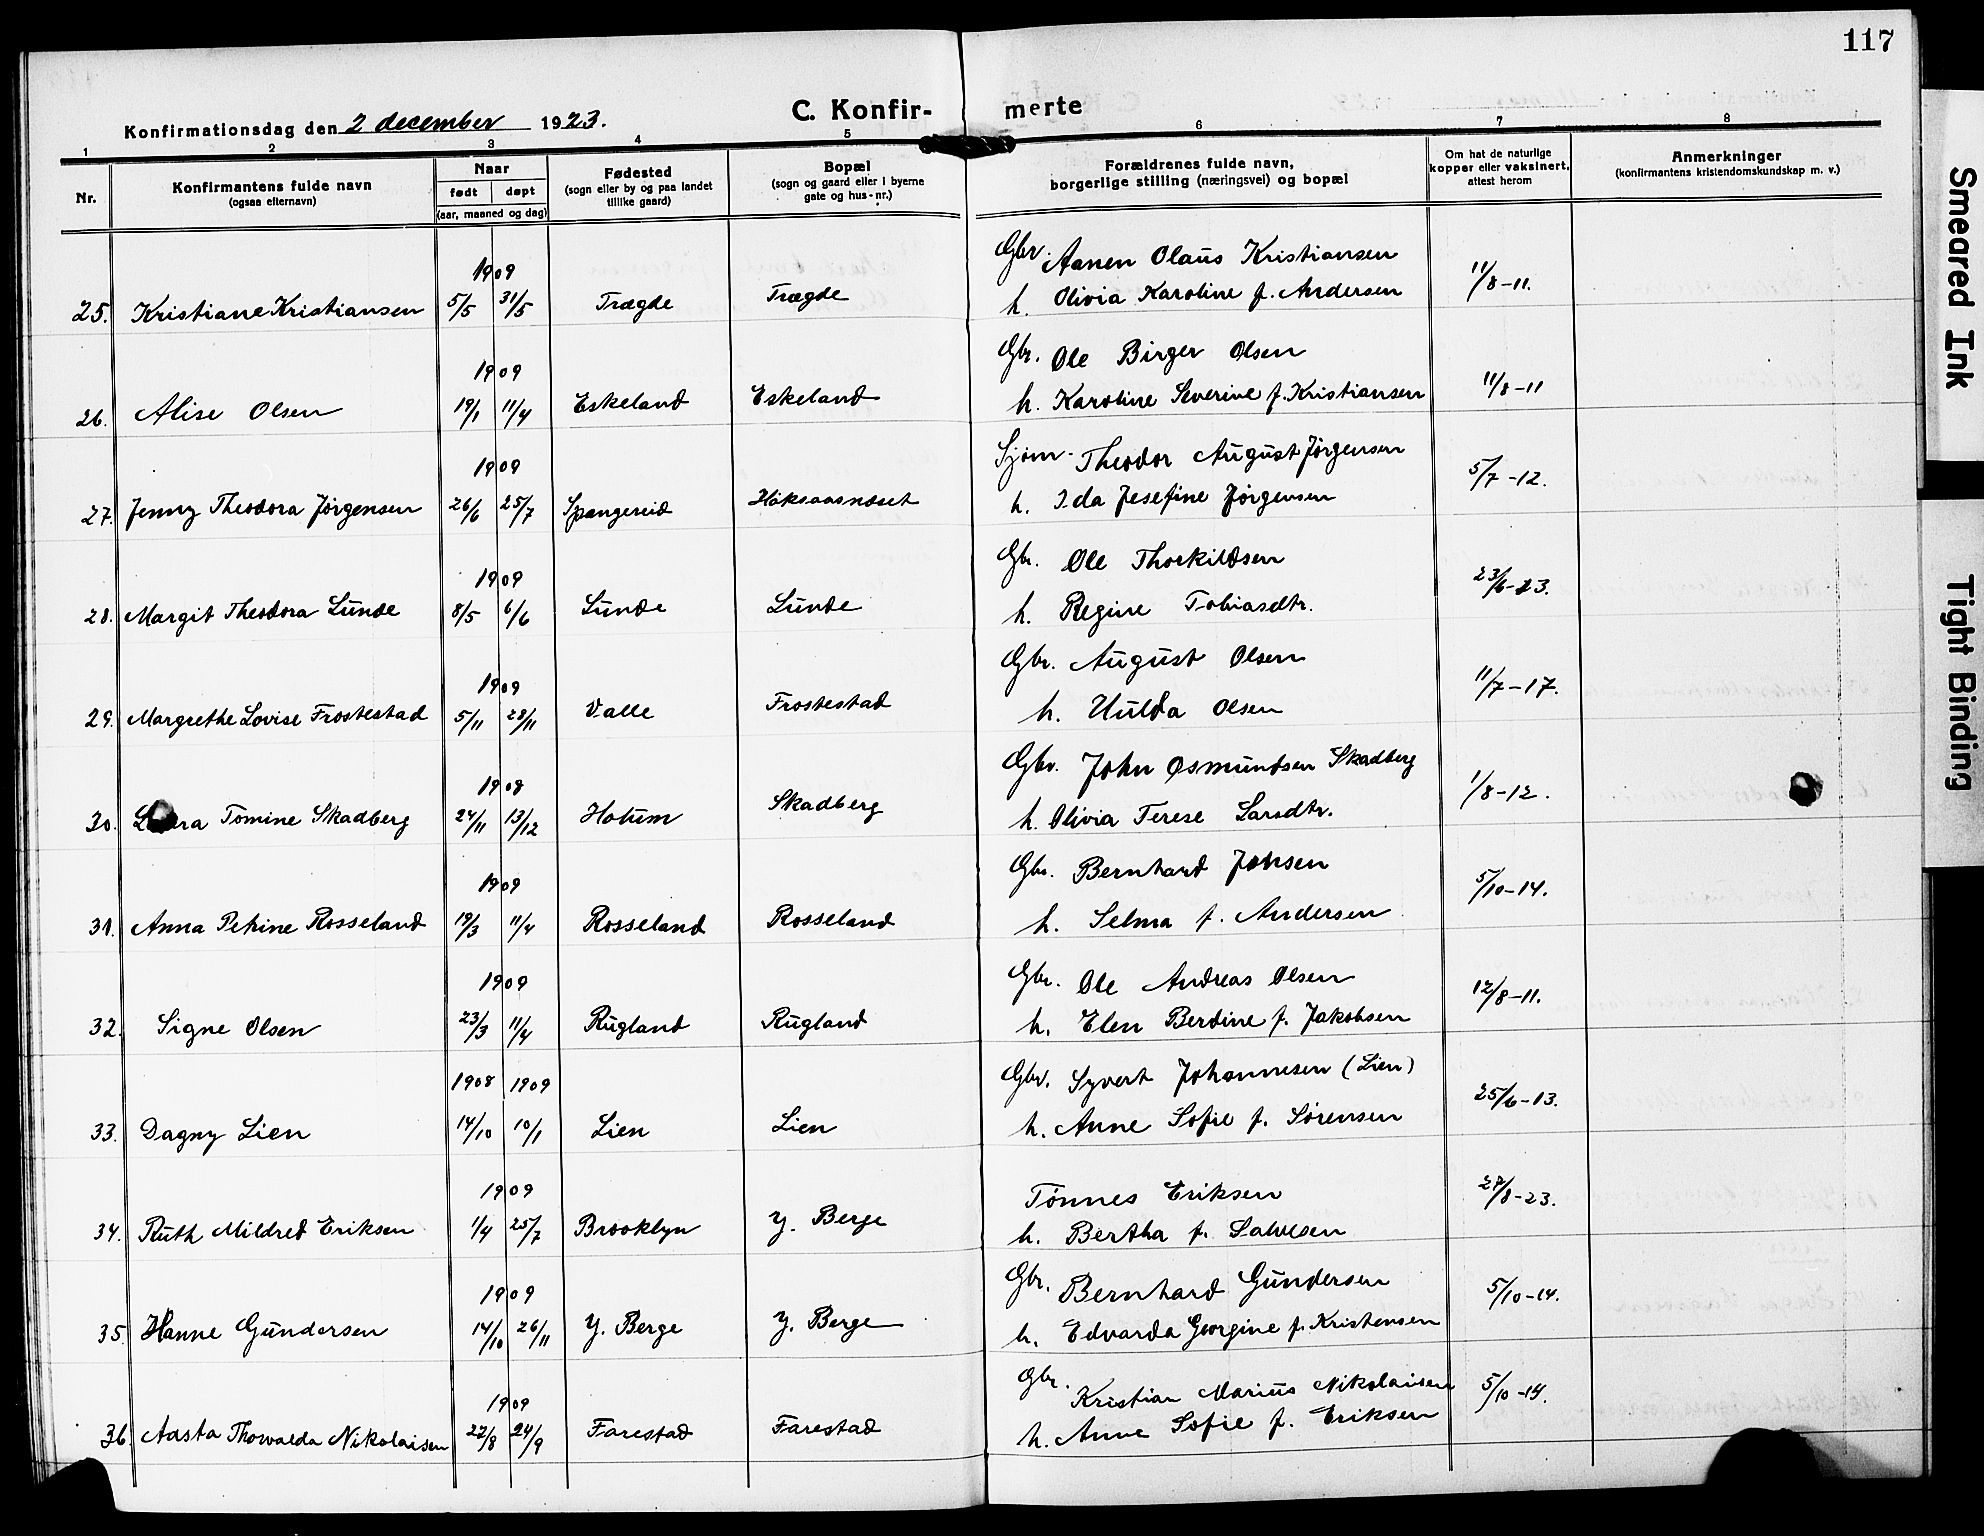 117
C. Konfirmerte
Konfirmationsdag den 2 december 1923.
1 2 3 4 5 6 7 8
Nr.
Konfirmantens fulde navn
(ogsaa efternavn)
Naar
født døpt
(aar, maaned og dag)
Fødested
(sogn eller by og paa landet
tillike gaard)
Bopæl
(sogn og gaard eller i byerne
gate og hus-nr.)
Forældrenes fulde navn,
borgerlige stilling (næringsvei) og bopæl
Om hat de naturlige
kopper eller vaksinert,
attest herom
Anmerkninger
(konfirmantens kristendomskundskap m. v.)
1909 Gbr. Aanen Olaus Kristiansen
25. Kristiane Kristiansen 5/5 31/5 Trægde Trægde h. Olivia Karoline f. Andersen 11/8-11.
1909 Gbr. Ole Birger Olsen
26. Alise Olsen 19/1 11/4 Eskeland Eskeland h. Karoline Severine f. Kristiansen 11/8-11
1909 Sjøm. Theodor August Jørgensen
27. Jenny Theodora Jørgensen 26/6 25/7 Spangereid Høksaasnæset h. Ida Josefine Jørgensen 5/7-12.
1909 Gbr. Ole Thorkildsen
28. Margit Theodora Lunde 8/5 6/6 Lunde Lunde h. Regine Tobiasdtr. 23/6-23.
1909 Gbr. August Olsen
29. Margrethe Lovise Frostestad 5/11 28/11 Valle Frostestad h. Hulda Olsen 11/7-17.
1908 Gbr. John Osmundsen Skadberg
30. Tomine Skadberg 24/11 13/12 Holum Skadberg h. Olivia Terese Larsdtr. 1/8-12.
1909 Gbr. Bernhard Johsen
31. Anna Petrine Rosseland 19/3 11/4 Rosseland Rosseland h. Selma f. Andersen 5/10-14.
1909 Gbr. Ole Andreas Olsen
32. Signe Olsen 23/3 11/4 Rugland Rugland h. Elen Berdine f. Jakobsen 12/8-11.
1908 1909 Gbr. Syvert Johannesen (Lien)
33. Dagny Lien 14/10 10/1 Lien Lien h. Anne Sofie f. Sørensen 25/6-13.
1909 Tønnes Eriksen
34. Ruth Mildred Eriksen 1/4 25/7 Brooklyn Y. Berge h. Bertha f. Salvesen 27/8-23.
1909 Gbr. Bernhard Gundersen
35. Hanne Gundersen 14/10 26/11 Y. Berge Y. Berge h. Edvarda Georgine f. Kristensen 5/10-14.
1909 Gbr. Kristian Marius Nikolaisen
36. Aasta Thorvalda Nikolaisen 22/8 24/9 Farestad Farestad h. Anne Sofie f. Eriksen 5/10-14.
Smeared Ink
Tight Binding